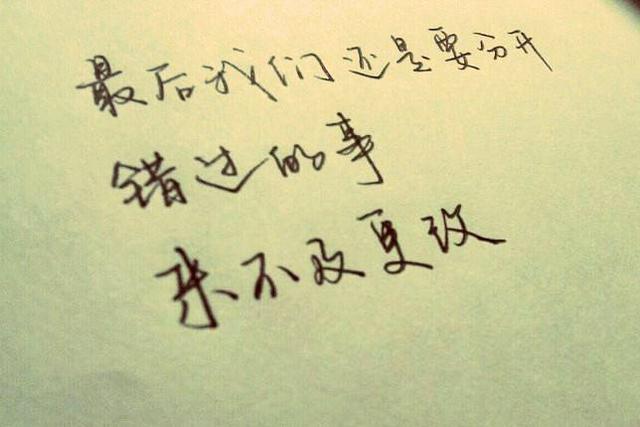 最后我们还是要分开
错过的事
来不及更改